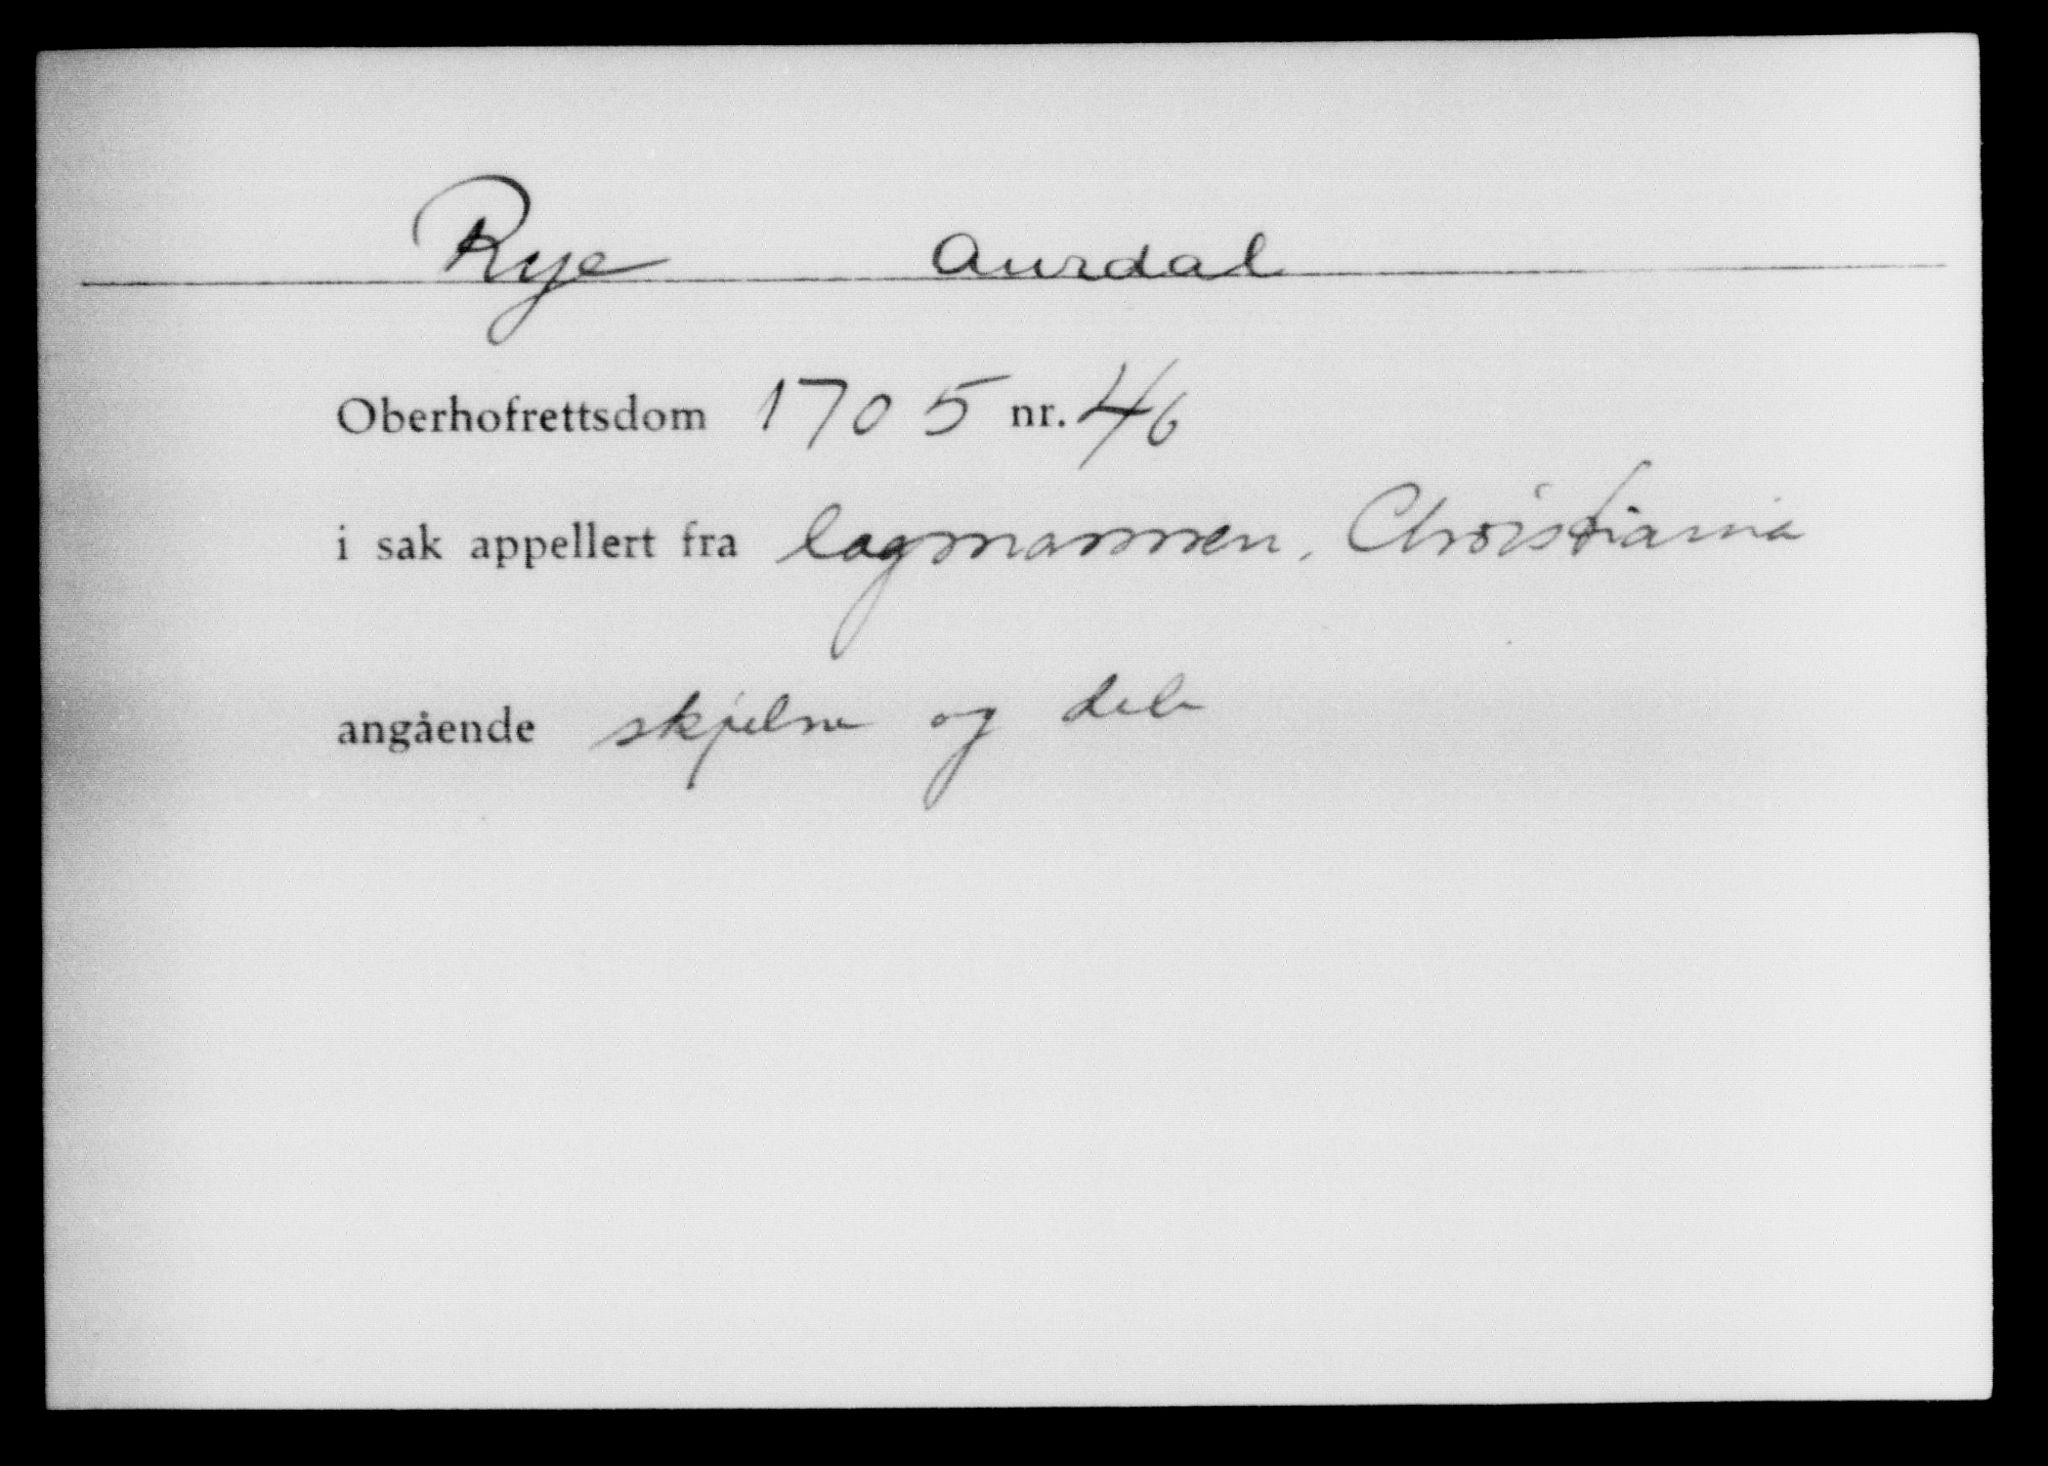 Rye Aurdal
Oberhofrettsdom 1705 nr. 46
i sak appellert fra lagmannen, Christiania
angående skjelne og dele